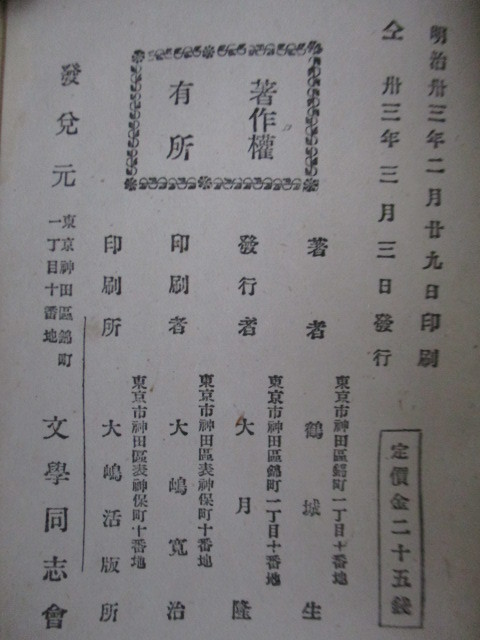 明治卅三年二月廿九日印刷
仝卅三年三月三日發行
定價金二十五錢
著作權
有所
著者
東京市神田區錦町一丁目十番地
鶴城生
發行者
東京市神田區錦町一丁目十番地
大月隆
印刷者
東京市神田區表神保町十番地
大嶋寬治
印刷所
東京市神田區表神保町十番地
大嶋活版所
發兌元
東京神田區錦町
一丁目十番地
文學同志會